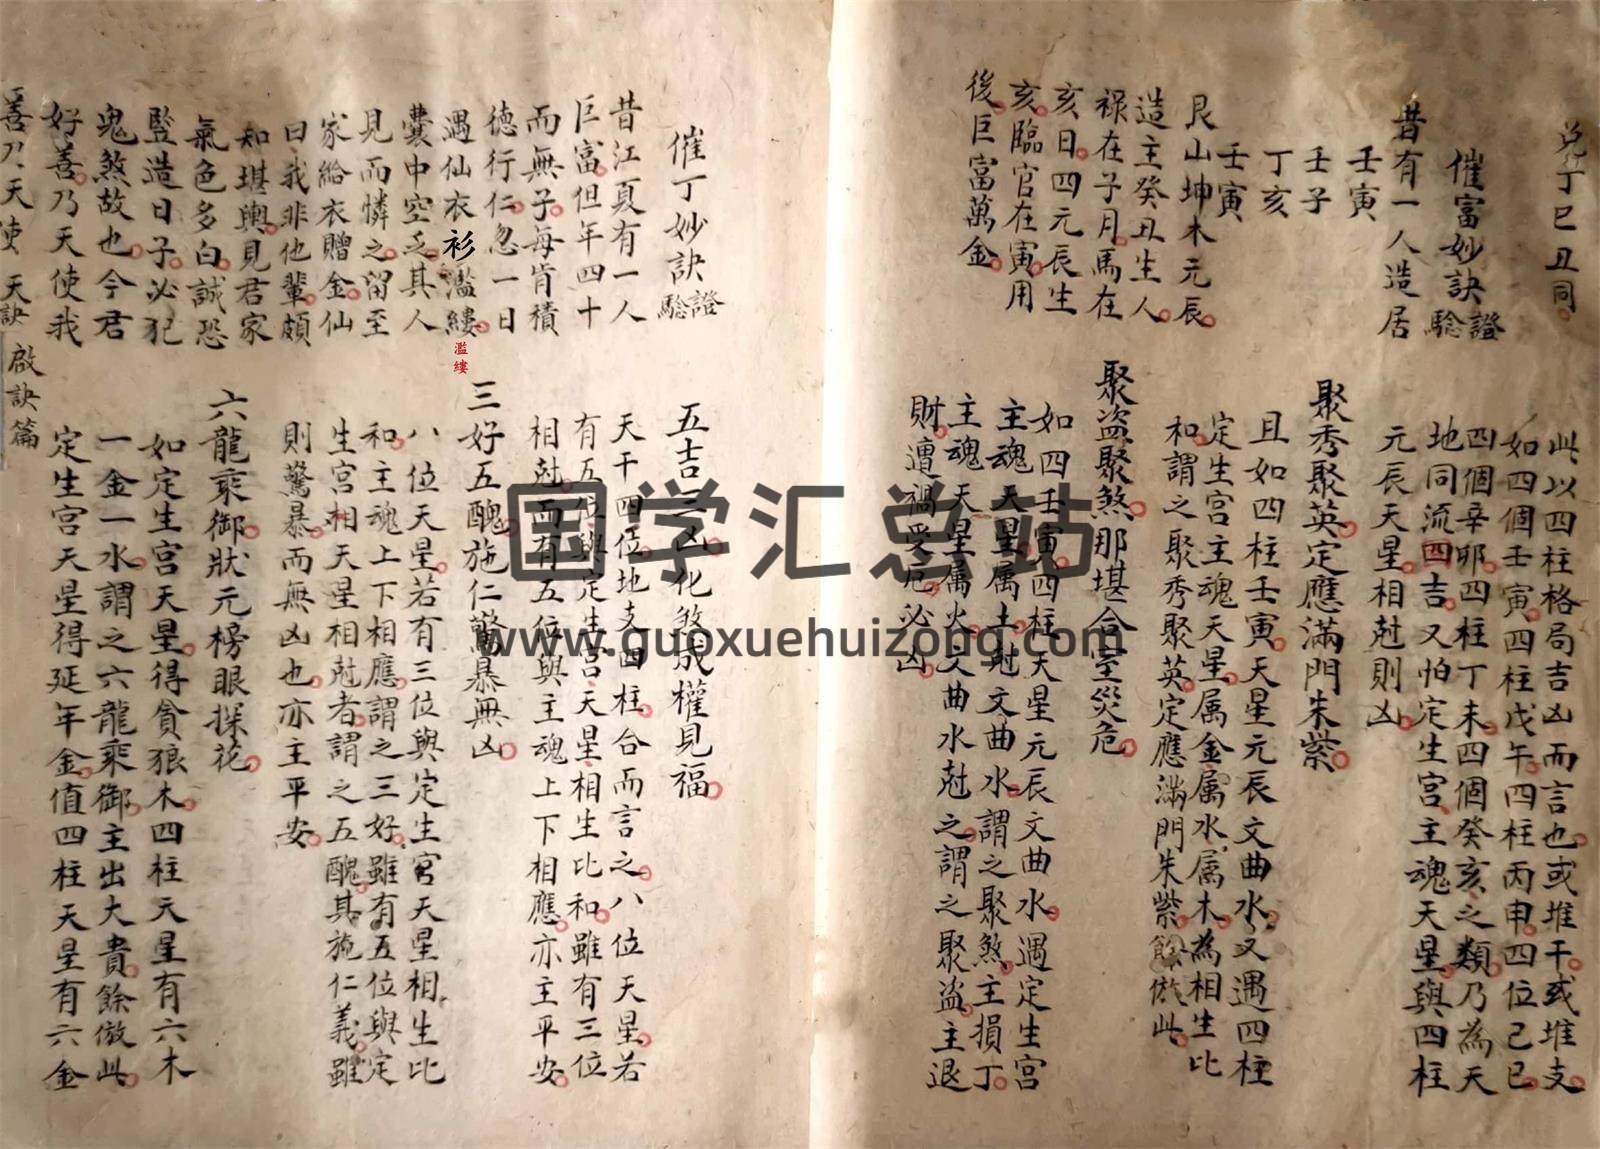 兌丁巳丑同
催富妙訣證驗
昔有一人造居
壬寅
壬子
丁亥
壬寅
艮山坤水元辰
造主癸丑生人
祿在子月馬在
亥日四元辰生
亥臨官在寅用
後巨富萬金
此以四柱格局吉凶而言也或堆干或堆支
如四個壬寅四柱戊午四柱丙申四位己巳
四個辛卯四柱丁未四個癸亥之類乃為天
地同流四吉又怕定生宫主魂天星與四柱
元辰天星相尅則凶
聚秀聚英定應滿門朱紫
且如四柱壬寅天星元辰文曲水又遇四柱
定生宫主魂天星属金属水属木為相生比
和謂之聚秀聚英定應滿門朱紫餘倣此
聚盜聚煞那堪合室災危
如四壬寅四柱天星元辰文曲水遇定生宫
主魂天星属土尅文曲水謂之聚煞主損丁
主魂天星属火文曲水尅之謂之聚盜主退
財遭禍受危必凶
催丁妙訣證驗
昔江夏有一人
巨富但年四十
而無子每肯積
德行仁忽一日
遇仙衣衫濫縷
濫縷
囊中空乏其人
見而憐之留至
家給衣贈金仙
曰我非他輩頗
知堪輿見君家
氣色多白誠恐
竪造日子必犯
鬼煞故也今君
好善乃天使我
五吉三凶化煞成權見福
天干四位地支四柱合而言之八位天星若
有五位與定生宫天星相生比和雖有三位
相尅而有五位與主魂上下相應亦主平安
三好五醜施仁驚暴無凶
八位天星若有三位與定生宫天星相生比
和主魂上下相應謂之三好雖有五位與定
生宫相天星相尅者謂之五醜其施仁義雖
則驚暴而無凶也亦主平安
六龍乘御狀元榜眼探花
如定生宫天星得貪狼木四柱天星有六木
一金一水謂之六龍乘御主出大貴餘倣此
定生宫天星得延年金值四柱天星有六金
善乃天使 天訣
啟訣篇
国学汇总站
www.guoxuehuizong.com